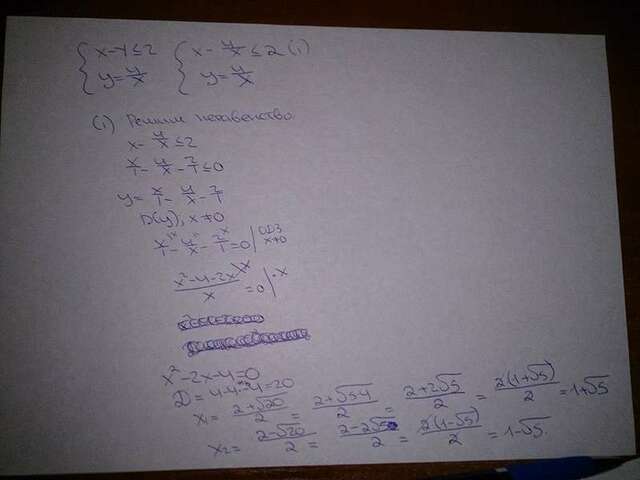 { x-y≤2 { x-4/x≤2 (1)
{ y=4/x { y=4/x
(1) Решим неравенство
x-4/x≤2
x/1-4/x-2/1≤0
y=x/1-4/x-2/1
D(y), x≠0
x/1-4/x-2/1=0 | ОДЗ x≠0
(x²-4-2x)/x=0 |·x
x²-2x-4=0
D=4-4·-4=20
x₁=(2+√20)/2=(2+√5·4)/2=(2+2√5)/2=2(1+√5)/2=1+√5
x₂=(2-√20)/2=(2-2√5)/2=2(1-√5)/2=1-√5.